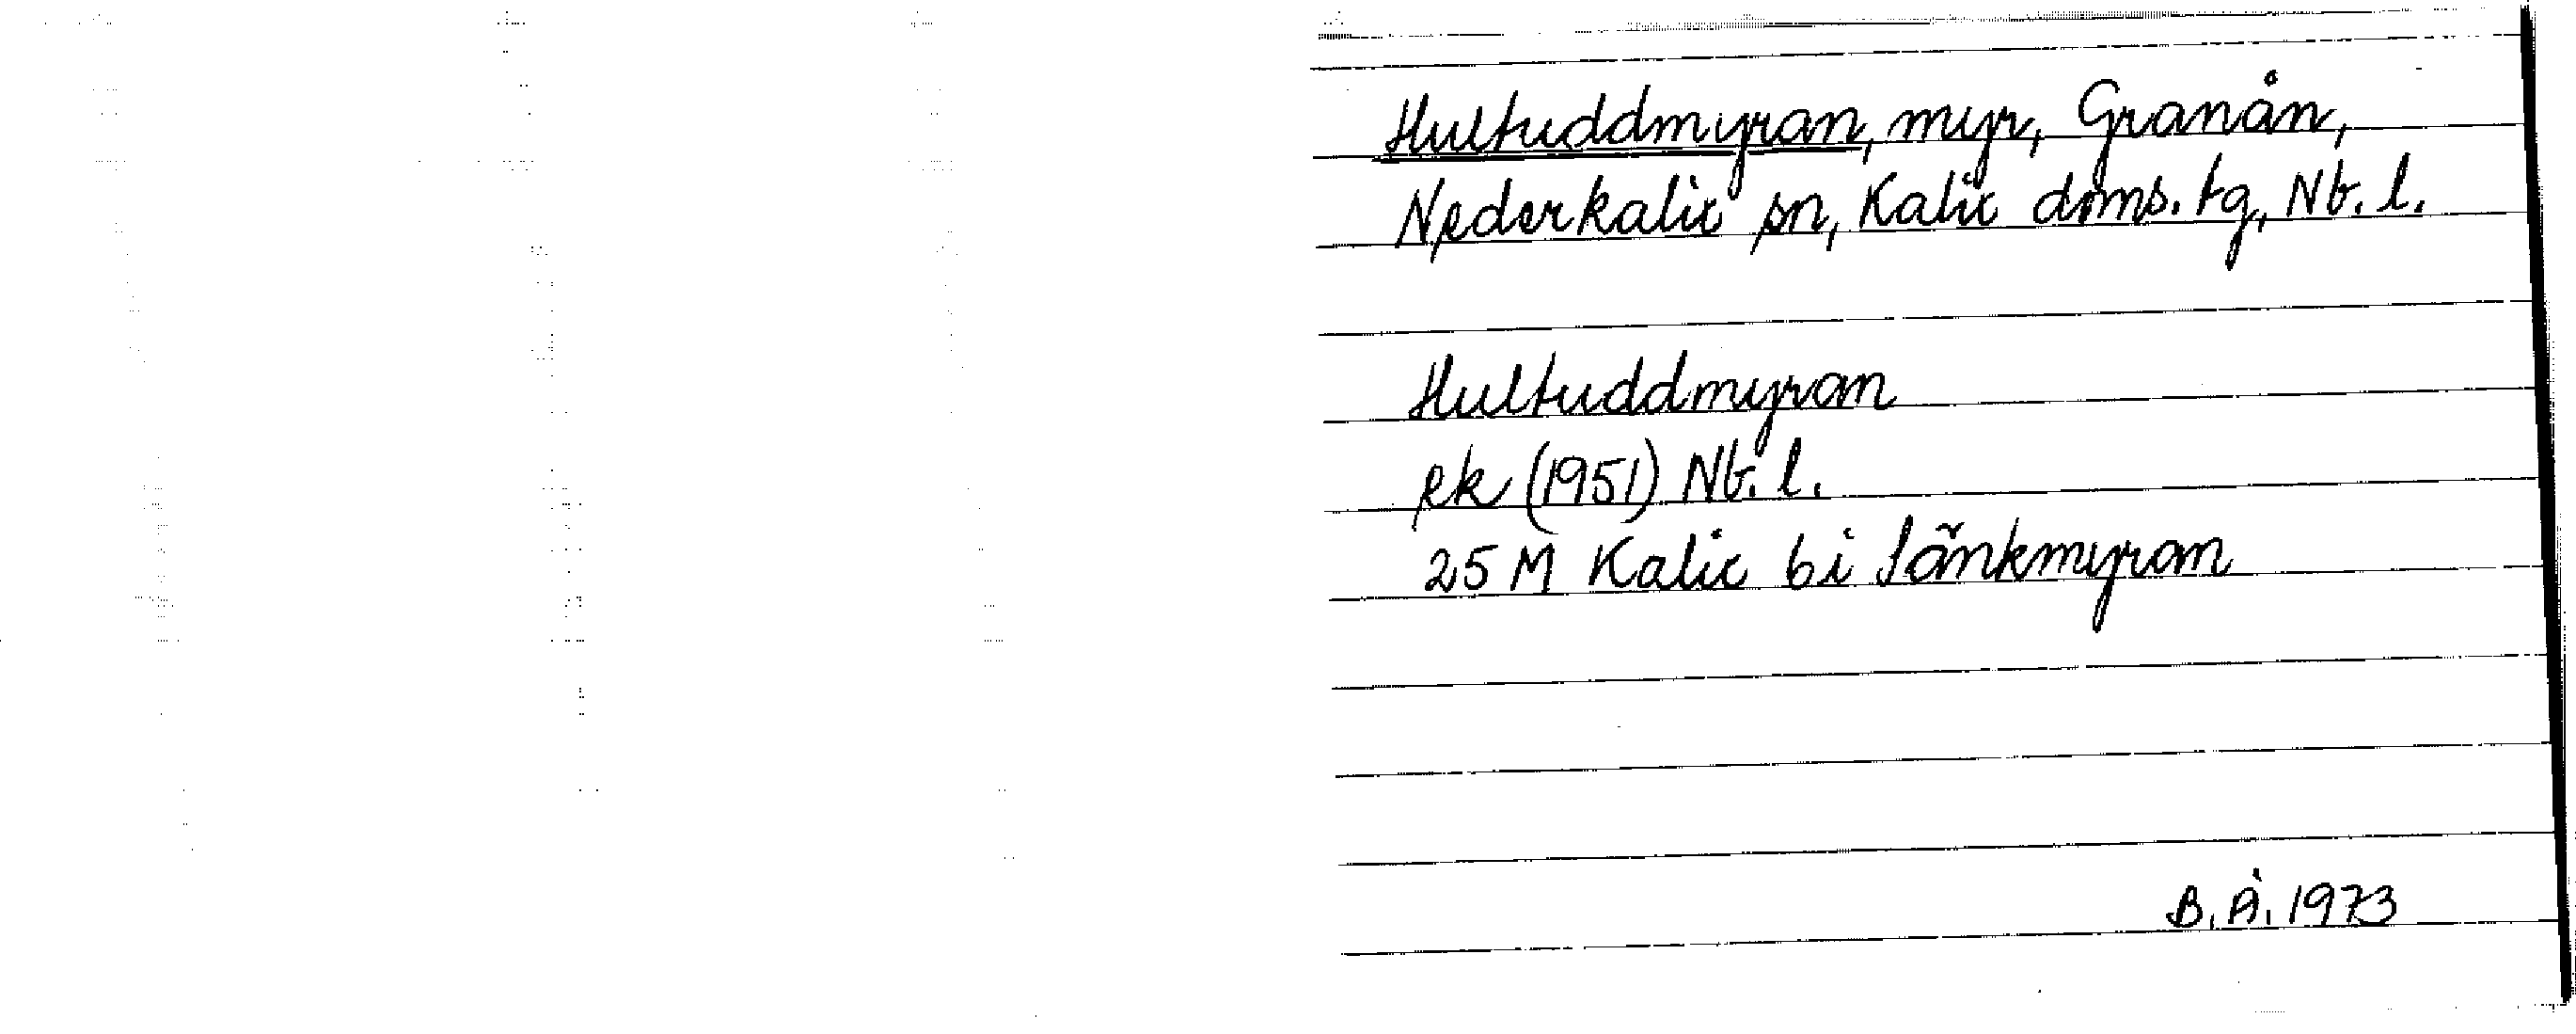 Hultuddmyran, myr, Granån,
Nederkalix sn, Kalix doms. tg, Nb. l.
Hultuddmyran
ek (1951) Nb. l.
25 M Kalix bi Sänkmyran
B. Å. 1973